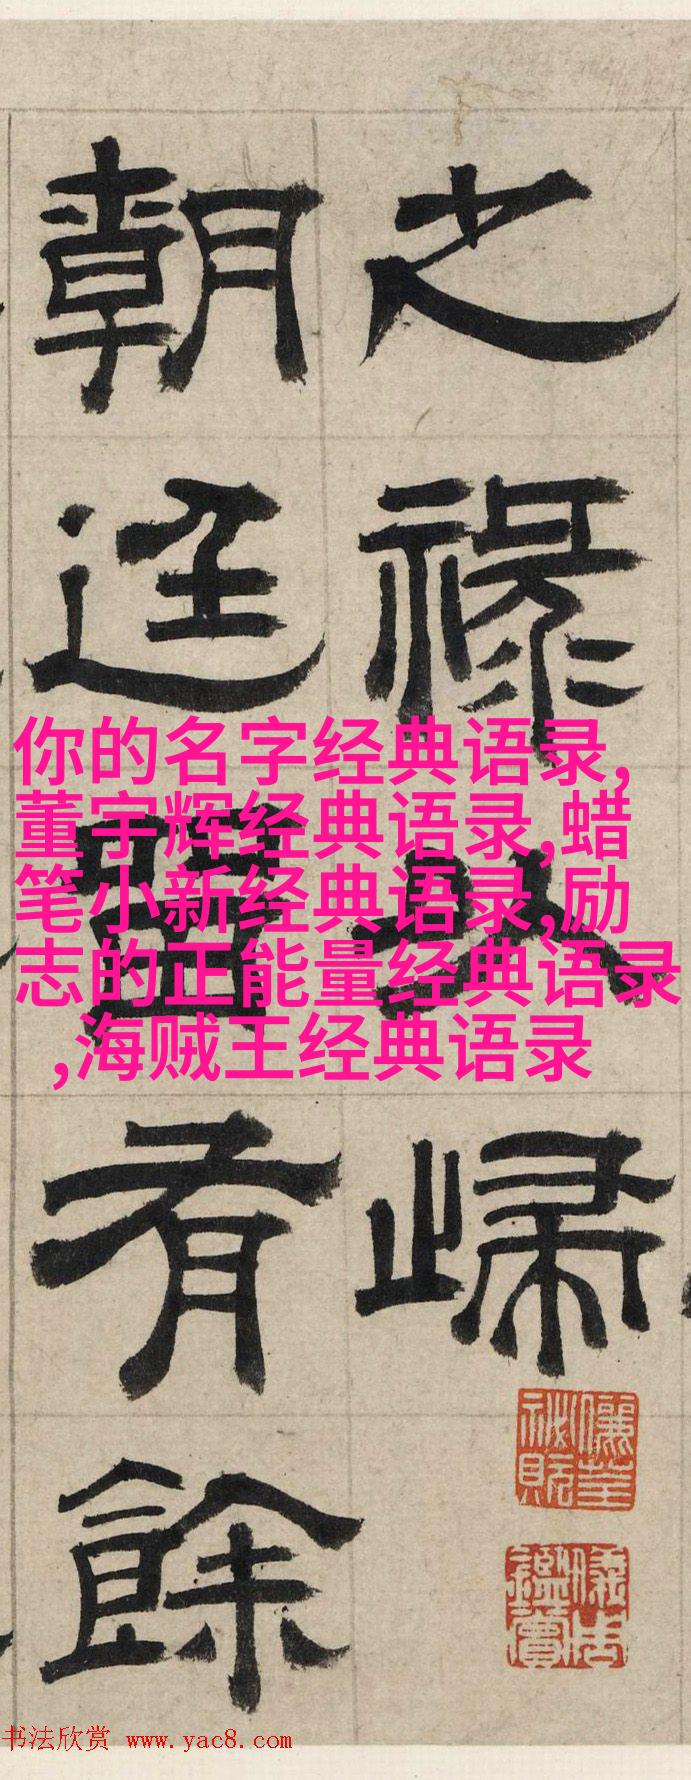 之祿以歸
朝廷留有餘
你的名字经典语录,
董宇辉经典语录,蜡
笔小新经典语录,励
志的正能量经典语录
,海贼王经典语录
书法欣赏 www.yac8.com